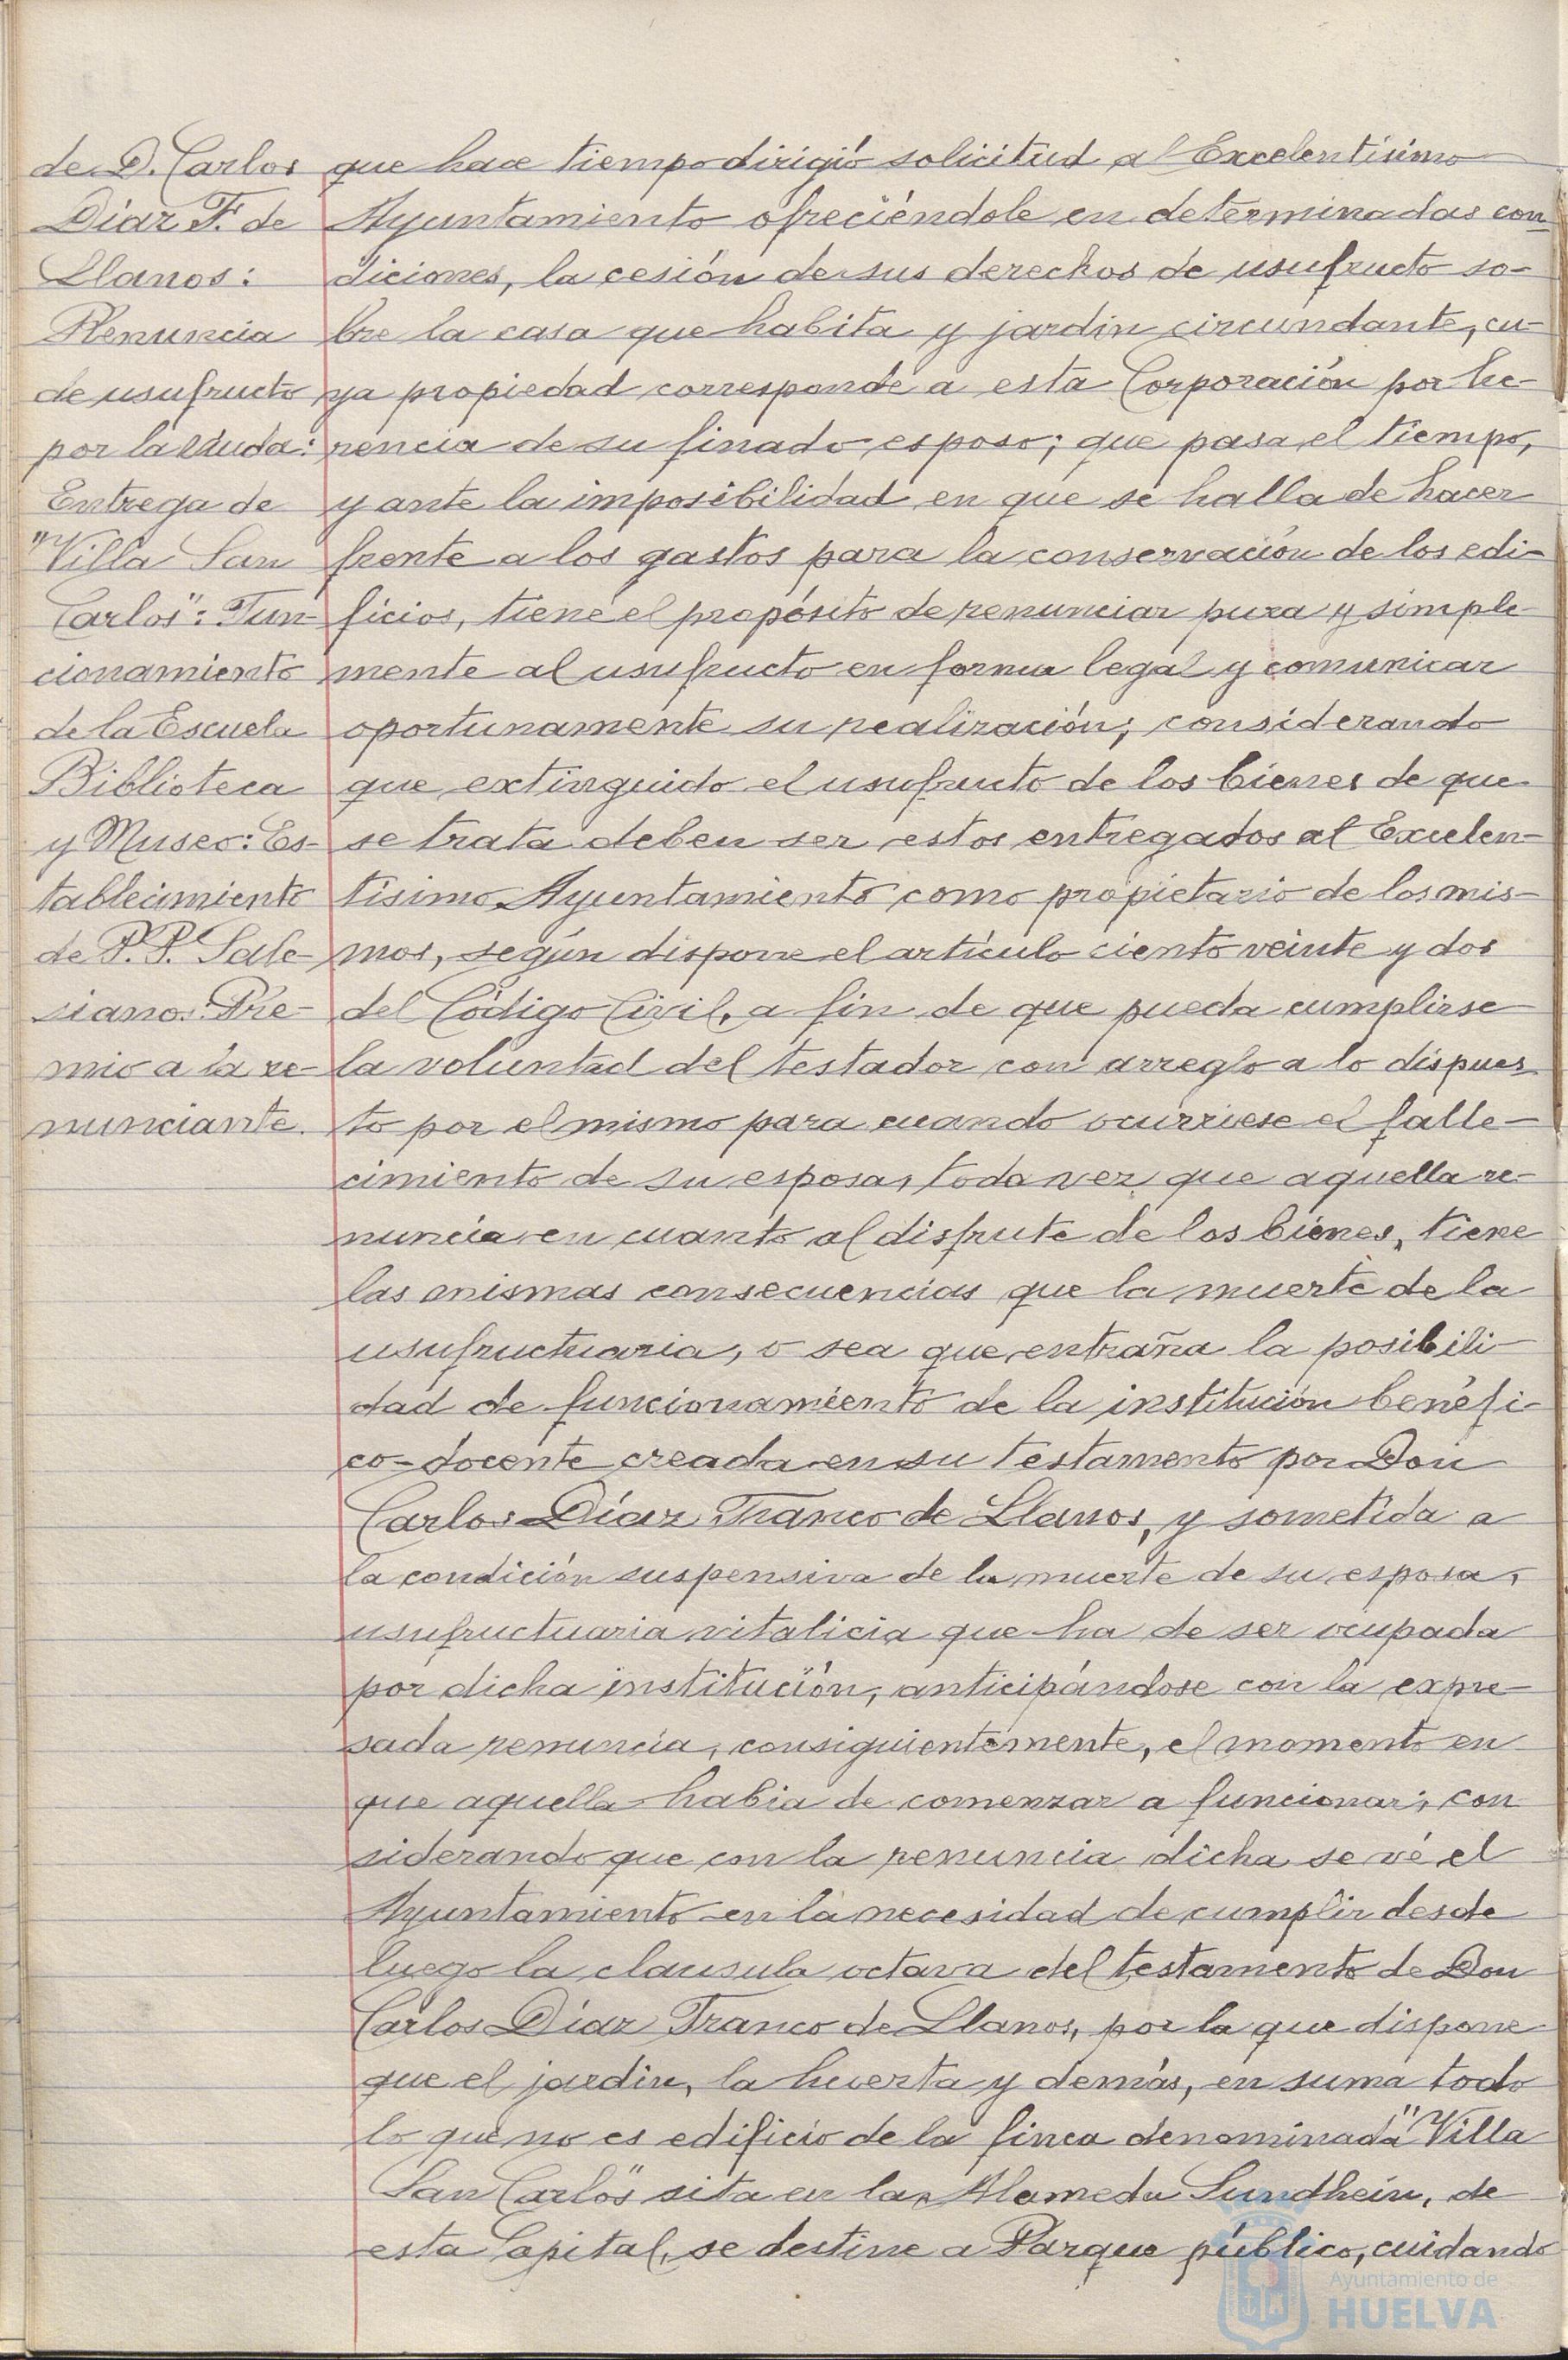 de D. Carlos
Díaz F. de
Llanos:
Renuncia
de usufructo
por la viuda:
Entrega de
"Villa San
Carlos": Fun-
cionamiento
de la Escuela
Biblioteca
y Museo: Es-
tablecimiento
de P.P. Sale-
sianos: Pre-
mio a la re-
nunciante.
que hace tiempo dirigió solicitud al Excelentísimo
Ayuntamiento ofreciéndole en determinadas con-
diciones, la cesión de sus derechos de usufructo so-
bre la casa que habita y jardin circundante, cu-
ya propiedad corresponde a esta Corporación por he-
rencia de su finado esposo; que pasa el tiempo,
y ante la imposibilidad en que se halla de hacer
frente a los gastos para la conservación de los edi-
ficios, tiene el propósito de renunciar pura y simple-
mente al usufructo en forma legal y comunicar
oportunamente su realización; considerando
que extinguido el usufructo de los bienes de que
se trata deben ser estos entregados al Excelen-
tisimo Ayuntamiento como propietario de los mis-
mos, según dispone el artículo ciento veinte y dos
del Código Civil, a fin de que pueda cumplirse
la voluntad del testador con arreglo a lo dispues-
to por el mismo para cuando ocurriese el falle-
cimiento de su esposa, toda vez que aquella re-
nuncia en cuanto al disfrute de los bienes, tiene
las mismas consecuencias que la muerte de la
usufructuaria, o sea que entraña la posibili-
dad de funcionamiento de la institución benéfi-
co-docente creada en su testamento por Don
Carlos Díaz Franco de Llanos, y sometida a
la condición suspensiva de la muerte de su esposa,
usufructuaria vitalicia que ha de ser ocupada
por dicha institución, anticipándose con la expre-
sada renuncia, consiguientemente, el momento en
que aquella habia de comenzar a funcionar; con
siderando que con la renuncia dicha se vé el
Ayuntamiento en la necesidad de cumplir desde
luego la clausula octava del testamento de Don
Carlos Díaz Franco de Llanos, por la que dispone
que el jardin, la huerta y demás, en suma todo
lo que no es edificio de la finca denominada "Villa
San Carlos" sita en la Alameda Sundhein, de
esta Capital, se destine a Parque público, cuidando
Ayuntamiento de
HUELVA